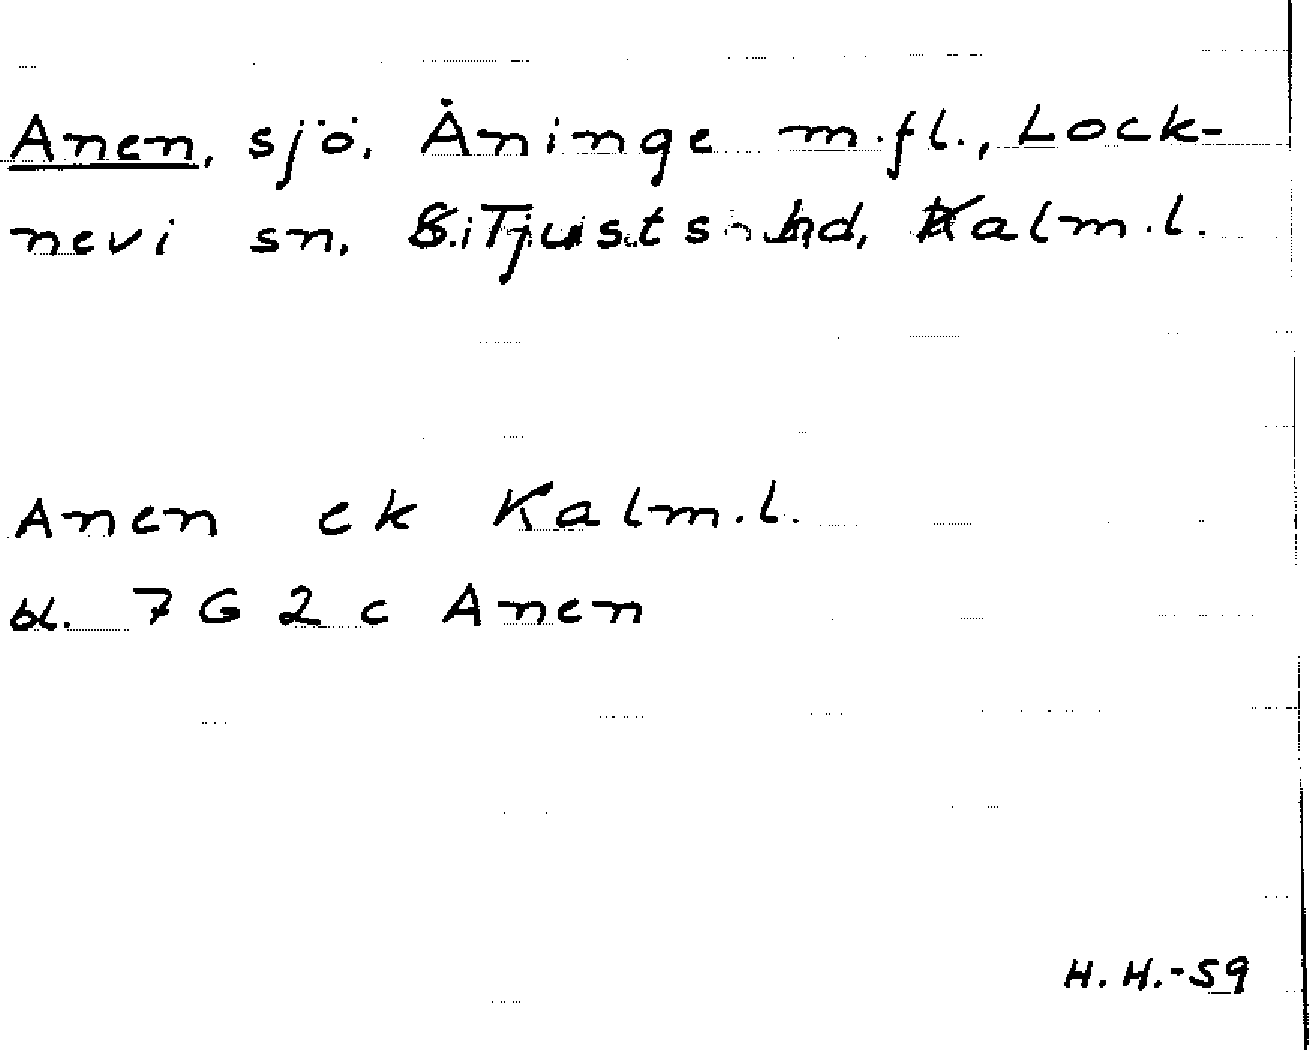 Anen, sjö, Åninge m.fl., Lock-
nevi sn, S. Tjusts hd, Kalm.l.
Anen ek Kalm.l.
bl. 7 G 2 c Anen
H. H.-59